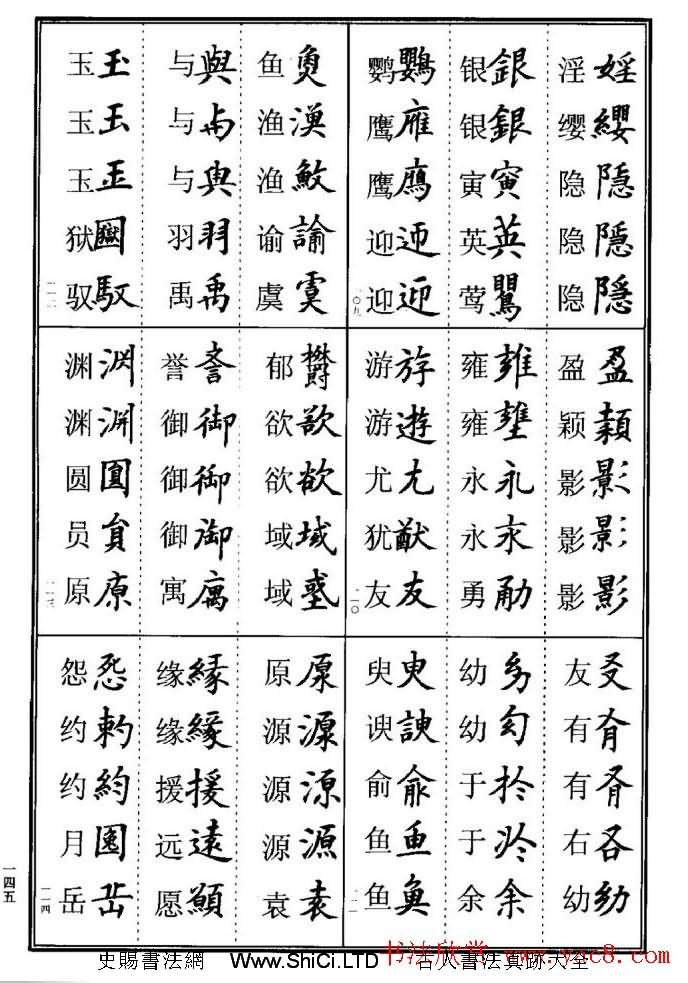 淫婬 缨纓 隐隐 隐隱 隐隱
银銀 银銀 寅寅 英英 莺鸎
鹦鸚 鹰雁 鹰鹰 迎迎 迎迎
一〇九
盈盈 颖穎 影影 影影 影影
雍雍 雍壅 永永 永永 勇勈
游斿 游遊 尤尤 犹猷 友友
一一〇
友 有有 有有 右右 幼幼
幼幼 幼幼 于扵 于扵 余余
臾臾 谀諛 俞俞 鱼魚 鱼魚
一一一
鱼魚 渔漁 渔 谕諭 虞虞
与與 与与 与與 羽羽 禹禹
玉玉 玉玉 玉玉 狱 驭馭
一一二
郁欝 欲欲 欲欲 域域 域
誉誉 御御 御御 御御 寓寓
渊渊 渊渊 圆圓 员員 原原
一一三
原原 源源 源源 源源 袁袁
缘緣 缘緣 援援 远遠 愿願
怨怨 约 约約 月囝 岳岳
一一四
一四五
史賜書法網 Www.ShiCi.LTD 古人書法真跡大全
书法欣赏 www.yac8.com